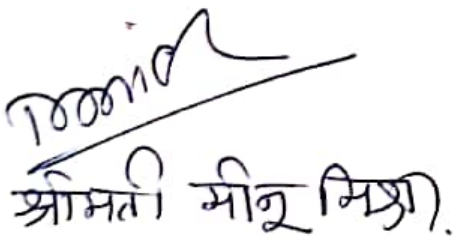 श्रीमती मीनू मिश्रा.